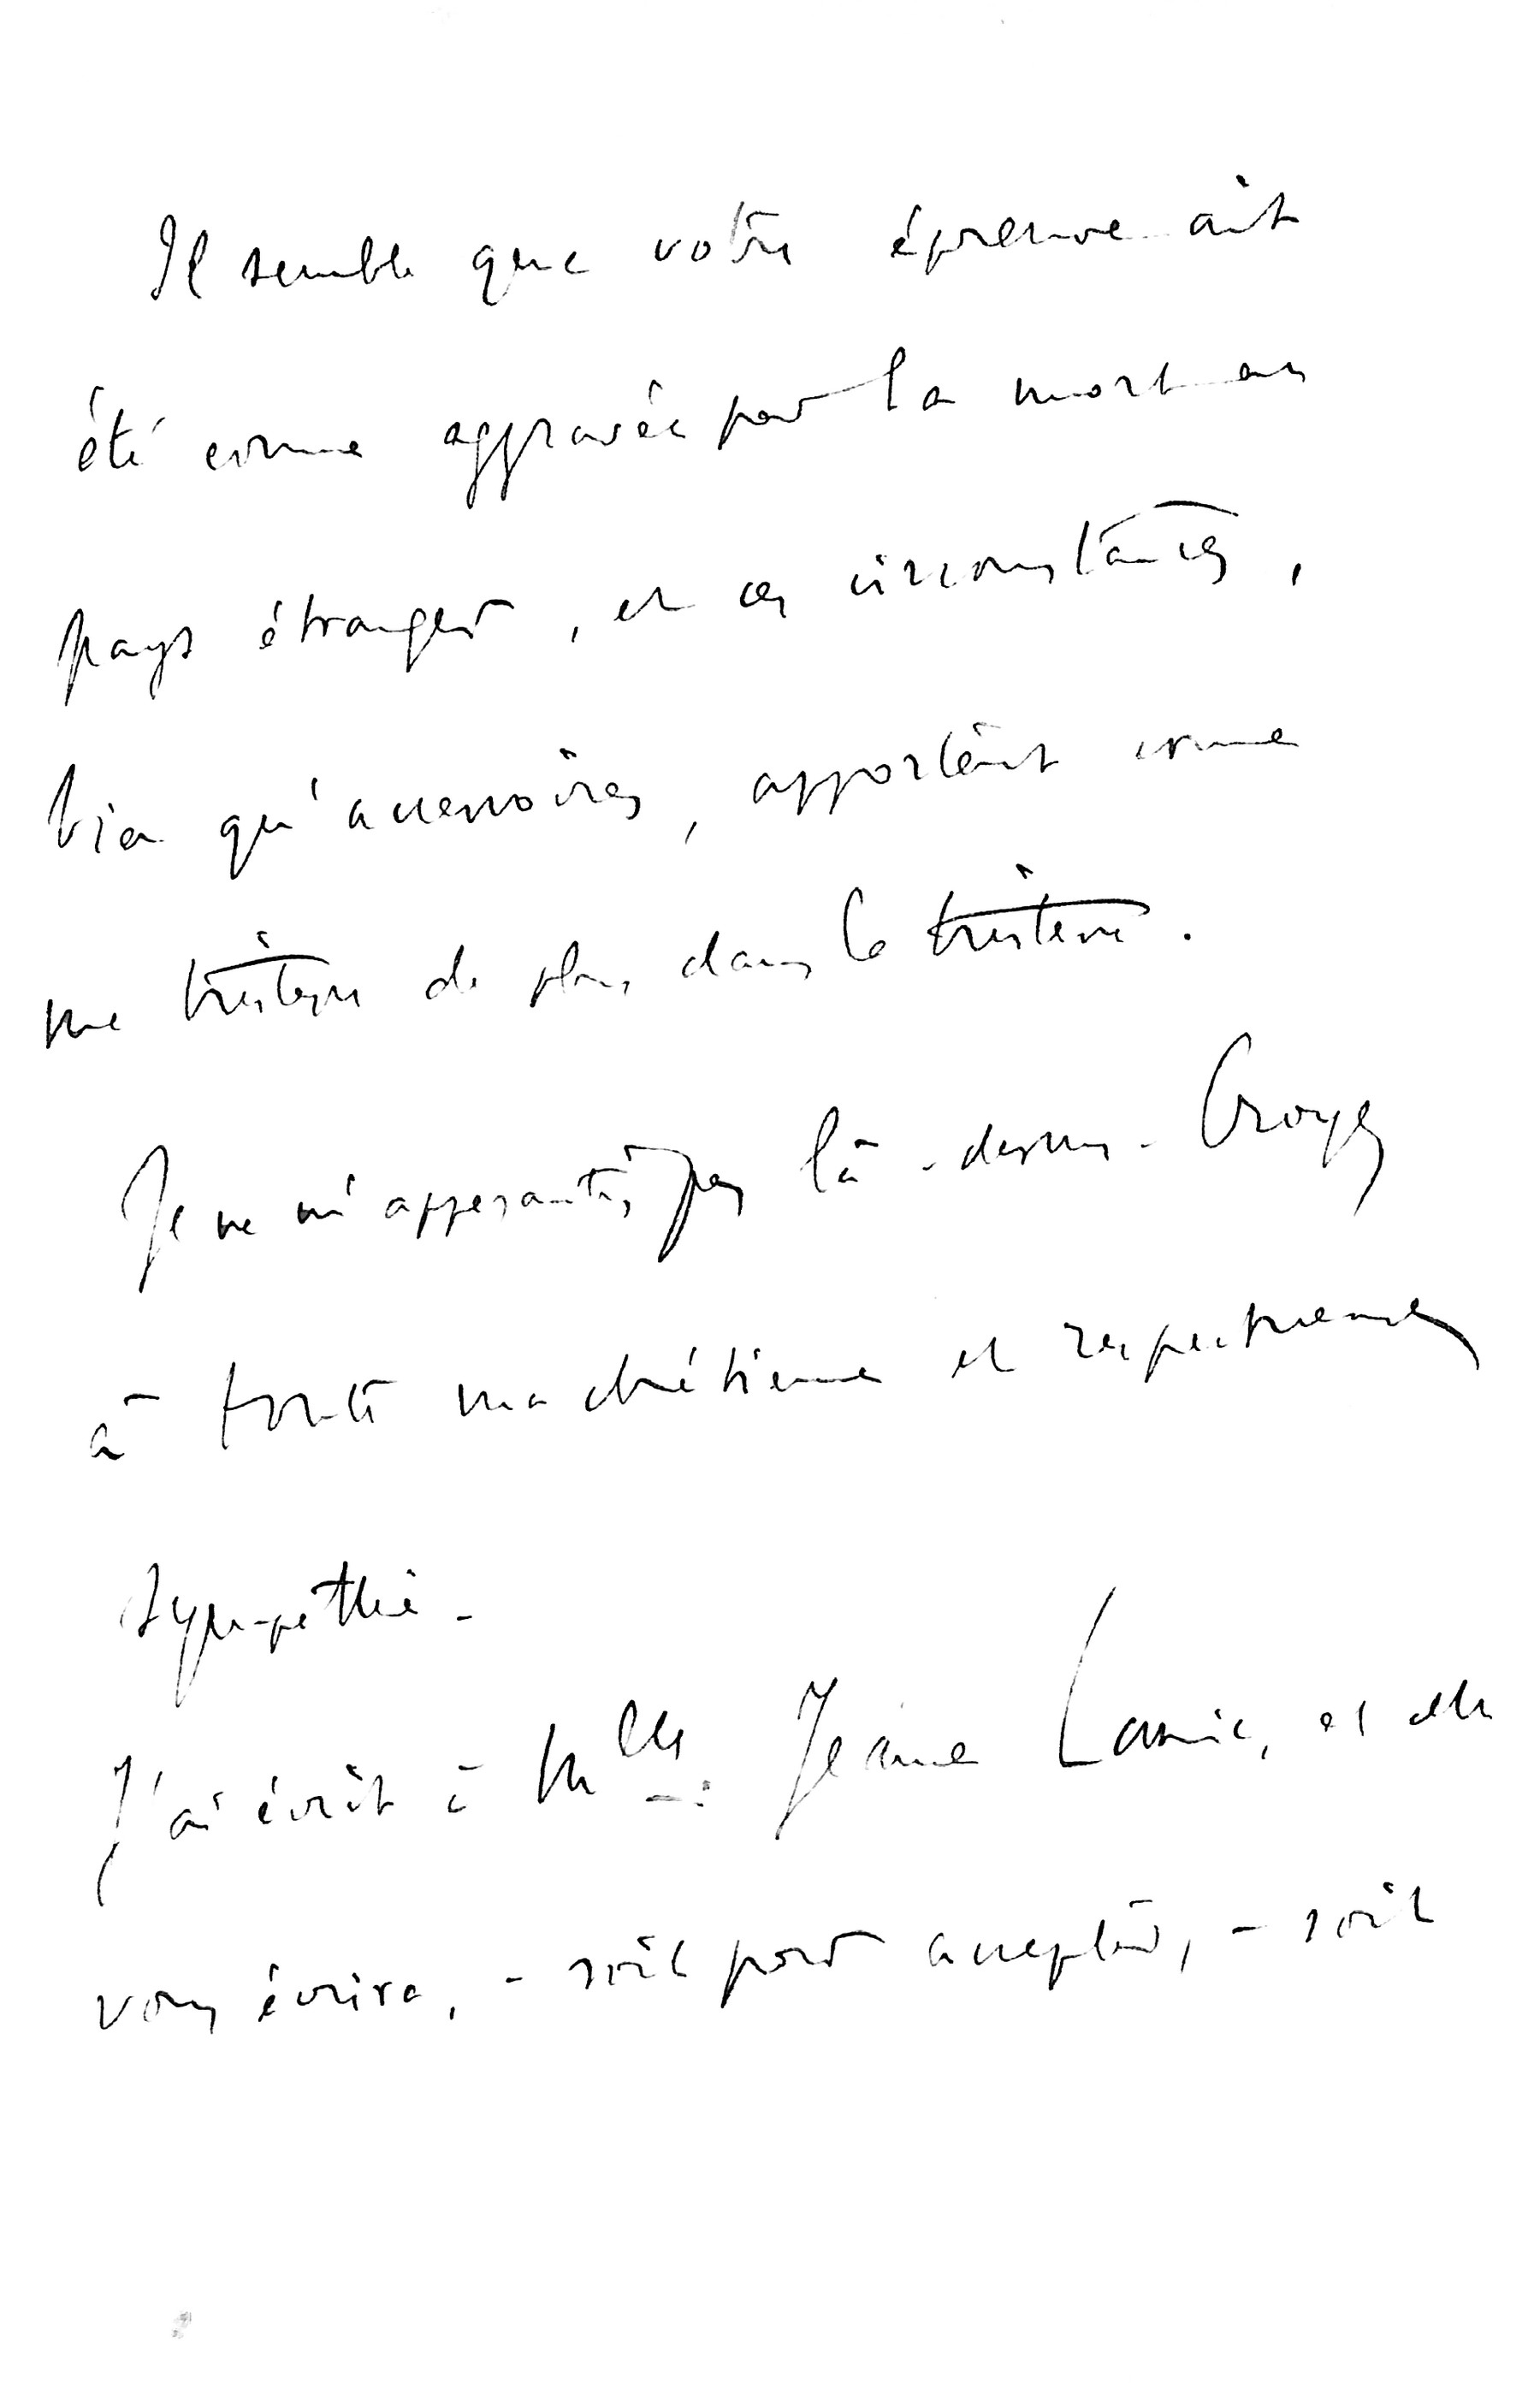 Il semble que votre épreuve ait
été comme aggravée par la mort en
pays étranger, et ces circonstances,
bien qu'accessoires, apportent comme
une tristesse de plus dans la tristesse.
Je ne m'appesantis pas là-dessus. Croyez
à toute ma chrétienne et respectueuse
sympathie -
J'ai écrit à Mlle. Jeanne et elle
vous écrira, - soit pour accepter, - soit